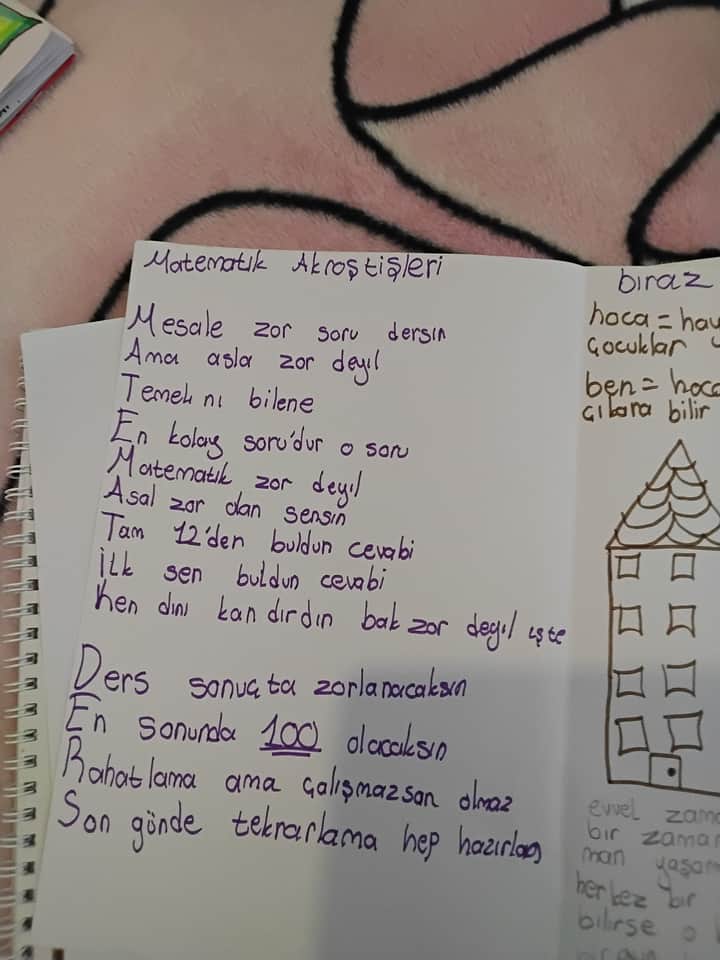 Matematik Akroştişleri
Mesale zor soru dersin
Ama asla zor deyil
Temeli ni bilene
En kolay soru'dur o soru
Matematik zor deyil
Asal zor olan sensin
Tam 12'den buldun cevabi
İlk sen buldun cevabi
Ken dini kan dırdın bak zor değil işte
Ders sonuçta zorlanacaksın
En sonunda 100 olacaksın
Rahatlama ama çalışmazsan olmaz
Son günde tekrarlama hep hazırlan
biraz
hoca = hay
çocuklar
ben = hoca
çıkara bilir
evvel zama
bir zaman
man yaşam
herkez bir
bilirse o